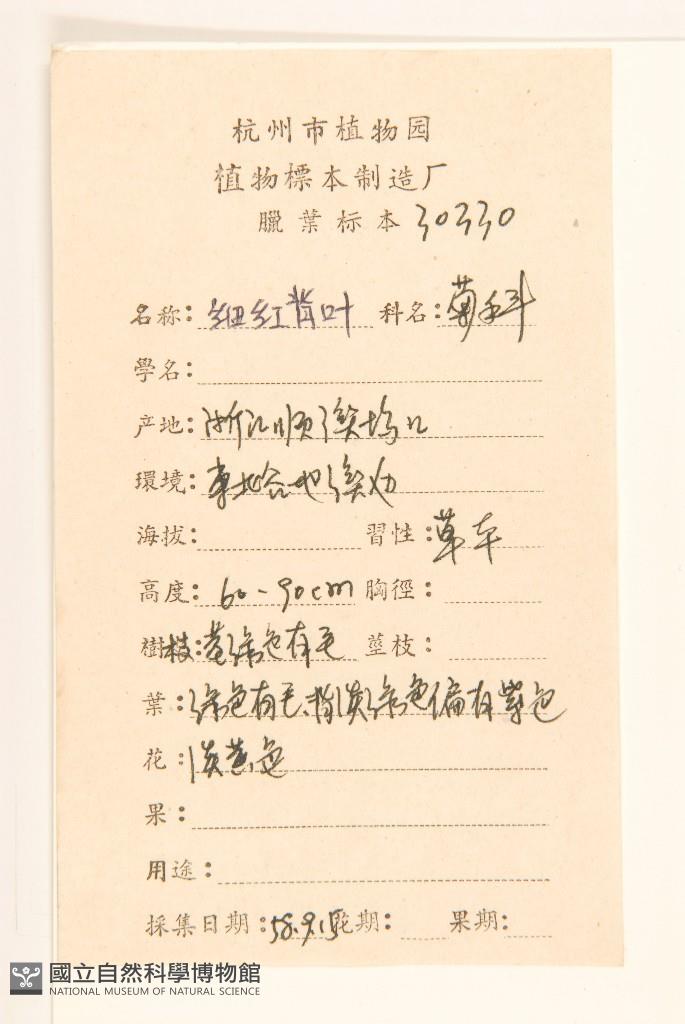 杭州市植物园
植物標本制造厂
臘葉标本 30330
名称: 细红背叶 科名: 菊科
學名:
产地: 浙江顺溪坞口
環境:
海拔: 習性: 草本
高度: 60-90cm 胸徑:
樹枝: 黄绿色有毛 莖枝:
葉: 绿色有毛、背淡绿色偏有紫色
花: 淡黄色
果:
用途:
採集日期: 58.9.15 花期: 果期:
國立自然科學博物館
NATIONAL MUSEUM OF NATURAL SCIENCE